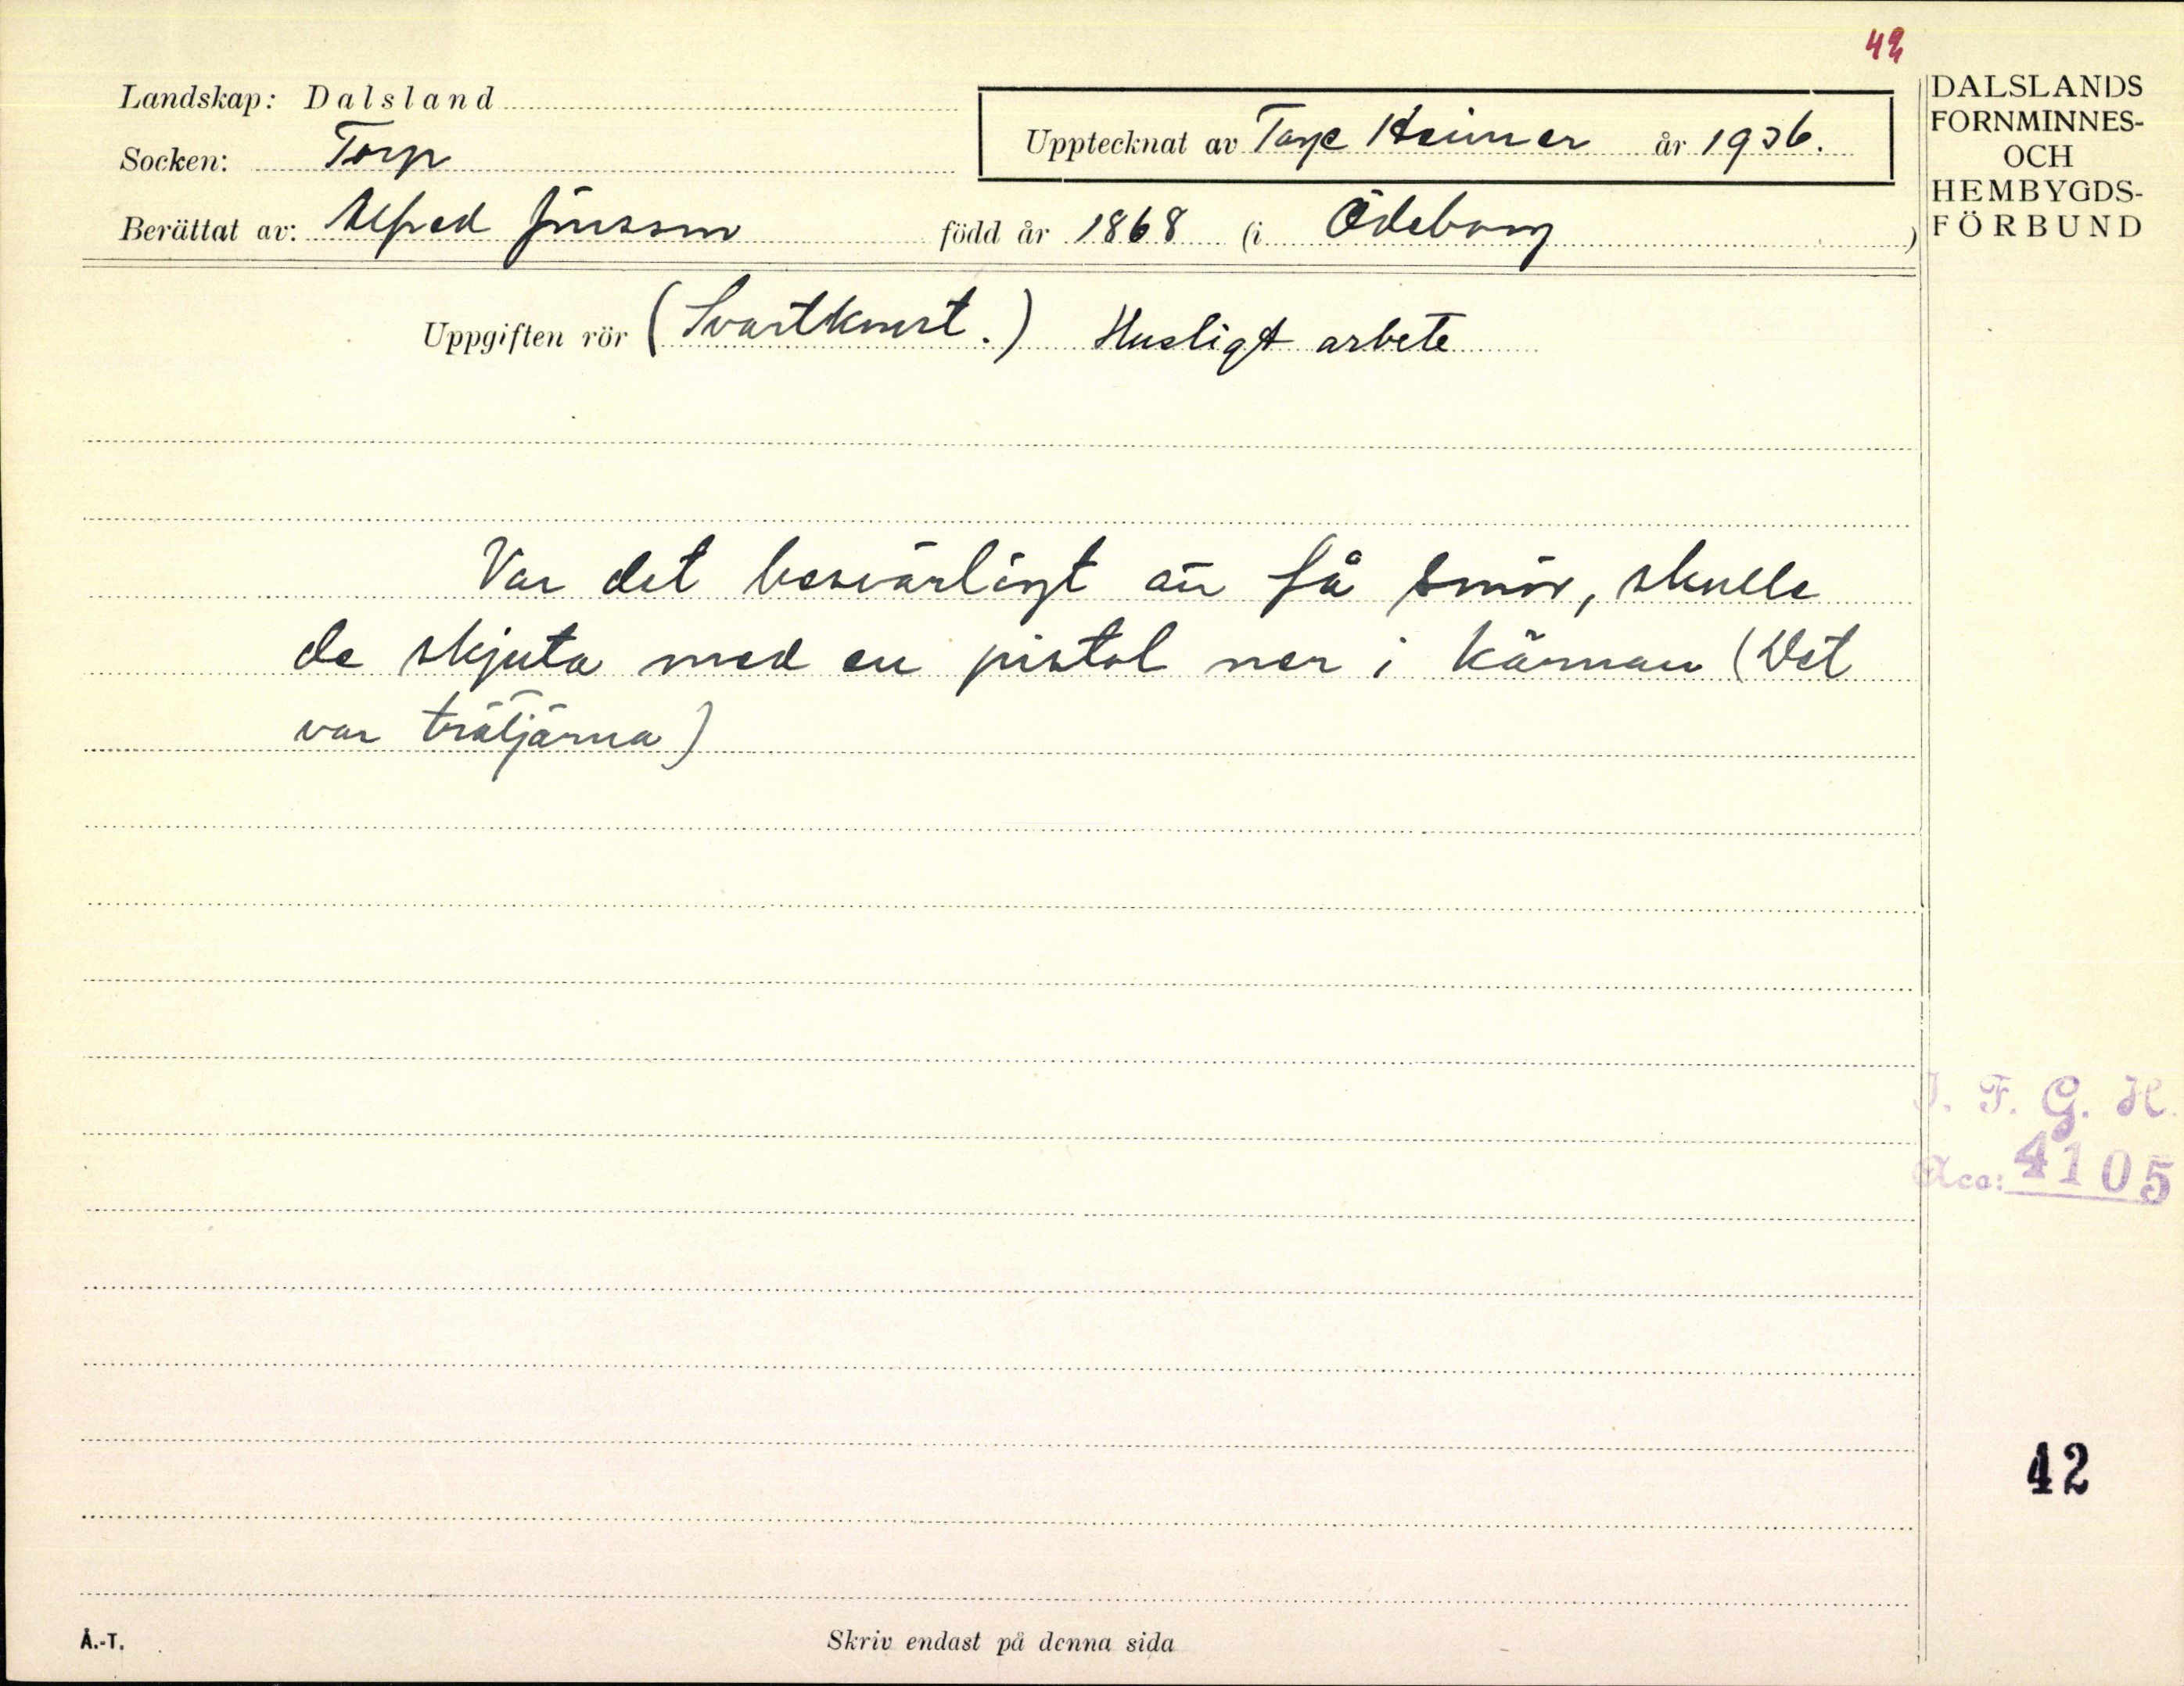 42
Landskap: Dalsland
Socken: Torp
Upptecknat av Tage Heimer år 1936.
Berättat av: Alfred Jonsson född år 1868 (i Ödeborg)
DALSLANDS
FORNMINNES-
OCH
HEMBYGDS-
FÖRBUND
Uppgiften rör (Svartkonst.) Husligt arbete
Var det besvärligt att få smör, skulle
de skjuta med en pistol ner i kärnan (Det
var trätjärna)
I. F. G. H.
Acc: 4105
42
Å.-T.
Skriv endast på denna sida